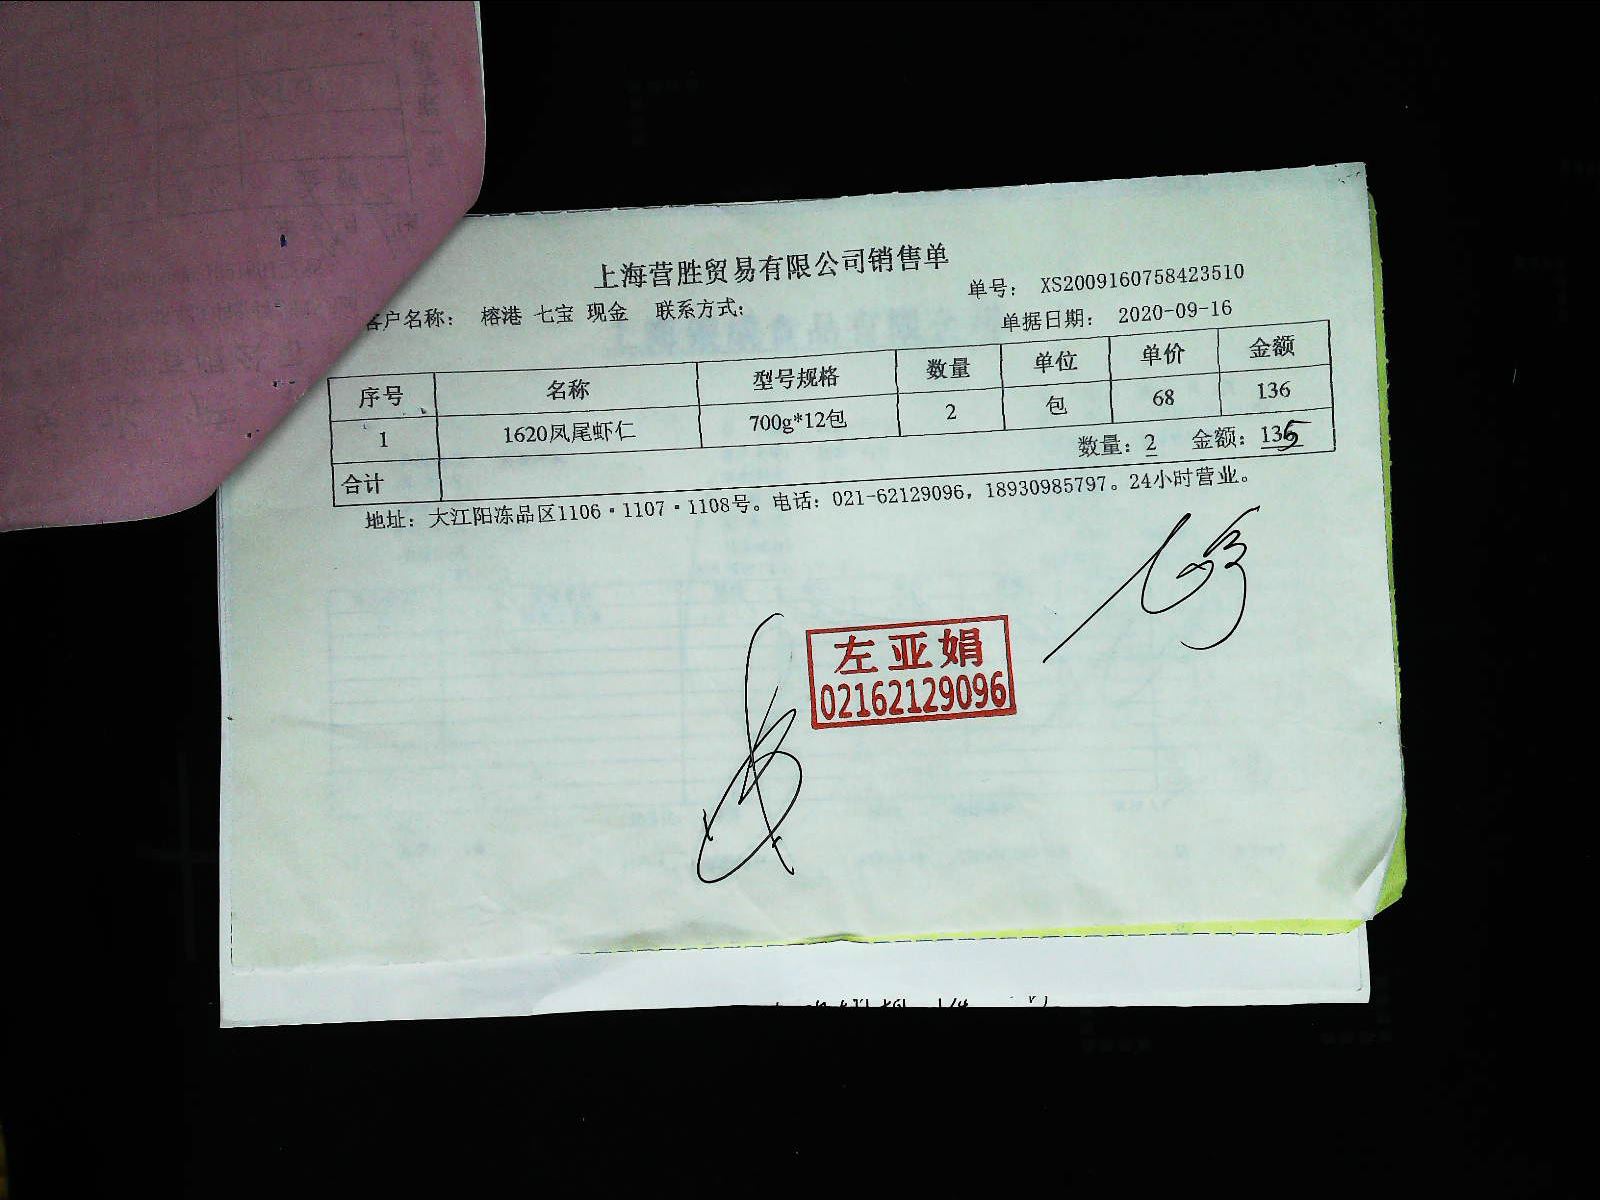 上海营胜贸易有限公司销售单
单号： XS2009160758423510
客户名称： 榕港 七宝 现金 联系方式：
单据日期： 2020-09-16
序号 名称 型号规格 数量 单位 单价 金额
1 1620凤尾虾仁 700g*12包 2 包 68 136
合计 数量：2 金额：135
地址：大江阳冻品区1106·1107·1108号。电话：021-62129096，18930985797。24小时营业。
左亚娟
02162129096